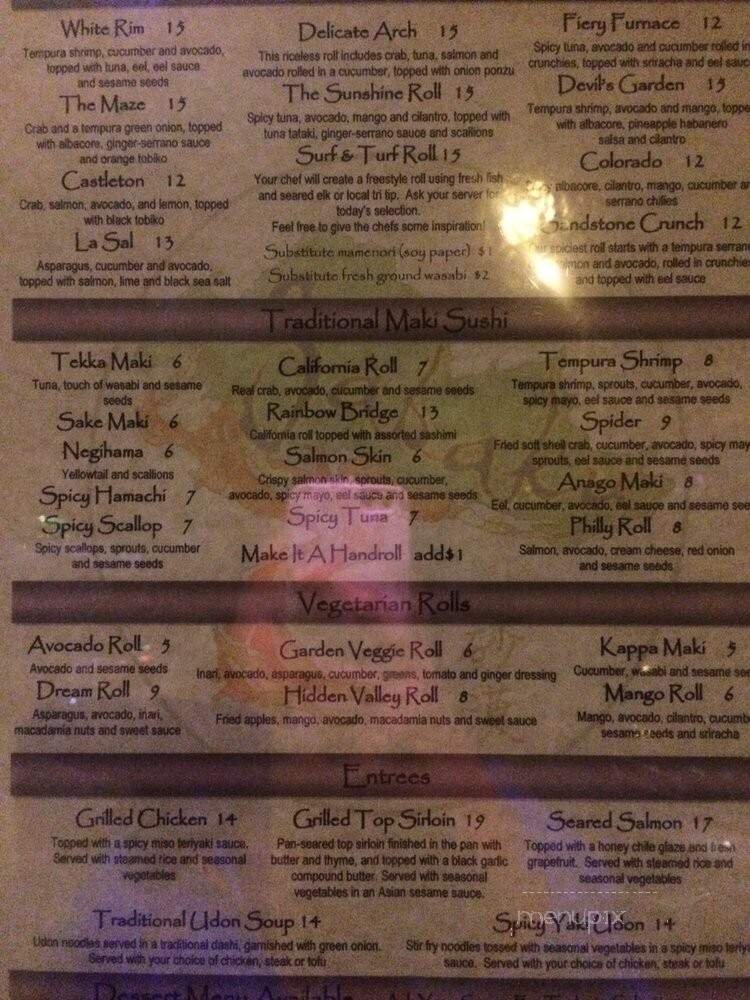 White Rim 15
Tempura shrimp, cucumber and avocado,
topped with tuna, eel, eel sauce
and sesame seeds
The Maze 15
Crab and a tempura green onion, topped
with albacore, ginger-serrano sauce
and orange tobiko
Castleton 12
Crab, salmon, avocado, and lemon, topped
with black tobiko
La Sal 13
Asparagus, cucumber and avocado,
topped with salmon, lime and black sea salt
Delicate Arch 15
This riceless roll includes crab, tuna, salmon and
avocado rolled in a cucumber, topped with onion ponzu
The Sunshine Roll 15
Spicy tuna, avocado, mango and cilantro, topped with
tuna tataki, ginger-serrano sauce and scallions
Surf & Turf Roll 15
Your chef will create a freestyle roll using fresh fish
and seared elk or local tri tip. Ask your server for
today's selection.
Feel free to give the chefs some inspiration!
Substitute mamenori (soy paper) $1
Substitute fresh ground wasabi $2
Fiery Furnace 12
Spicy tuna, avocado and cucumber rolled in
crunchies, topped with sriracha and eel sauc
Devil's Garden 15
Tempura shrimp, avocado and mango, topp
with albacore, pineapple habanero
salsa and cilantro
Colorado 12
albacore, cilantro, mango, cucumber an
serrano chilies
Sandstone Crunch 12
spiciest roll starts with a tempura serran
and avocado, rolled in crunchies
and topped with eel sauce
Traditional Maki Sushi
Tekka Maki 6
Tuna, touch of wasabi and sesame
seeds
Sake Maki 6
Negihama 6
Yellowtail and scallions
Spicy Hamachi 7
Spicy Scallop 7
Spicy scallops, sprouts, cucumber
and sesame seeds
California Roll 7
Real crab, avocado, cucumber and sesame seeds
Rainbow Bridge 13
California roll topped with assorted sashimi
Salmon Skin 6
Crispy salmon skin, sprouts, cucumber,
avocado, spicy mayo, eel sauce and sesame seeds
Spicy Tuna 7
Make It A Handroll add$1
Tempura Shrimp 8
Tempura shrimp, sprouts, cucumber, avocado,
spicy mayo, eel sauce and sesame seeds
Spider 9
Fried soft shell crab, cucumber, avocado, spicy may
sprouts, eel sauce and sesame seeds
Anago Maki 8
Eel, cucumber, avocado, eel sauce and sesame see
Philly Roll 8
Salmon, avocado, cream cheese, red onion
and sesame seeds
Vegetarian Rolls
Avocado Roll 5
Avocado and sesame seeds
Dream Roll 9
Asparagus, avocado, inari,
macadamia nuts and sweet sauce
Garden Veggie Roll 6
Inari, avocado, asparagus, cucumber, greens, tomato and ginger dressing
Hidden Valley Roll 8
Fried apples, mango, avocado, macadamia nuts and sweet sauce
Kappa Maki 5
Cucumber, wasabi and sesame see
Mango Roll 6
Mango, avocado, cilantro, cucumb
sesame seeds and sriracha
Entrees
Grilled Chicken 14
Topped with a spicy miso teriyaki sauce.
Served with steamed rice and seasonal
vegetables
Grilled Top Sirloin 19
Pan-seared top sirloin finished in the pan with
butter and thyme, and topped with a black garlic
compound butter. Served with seasonal
vegetables in an Asian sesame sauce.
Seared Salmon 17
Topped with a honey chile glaze and fresh
grapefruit. Served with steamed rice and
seasonal vegetables
Traditional Udon Soup 14
Udon noodles served in a traditional dashi, garnished with green onion.
Served with your choice of chicken, steak or tofu
Spicy Yaki Udon 14
Stir fry noodles tossed with seasonal vegetables in a spicy miso teriy
sauce. Served with your choice of chicken, steak or tofu
menupix
Dessert Menu Available